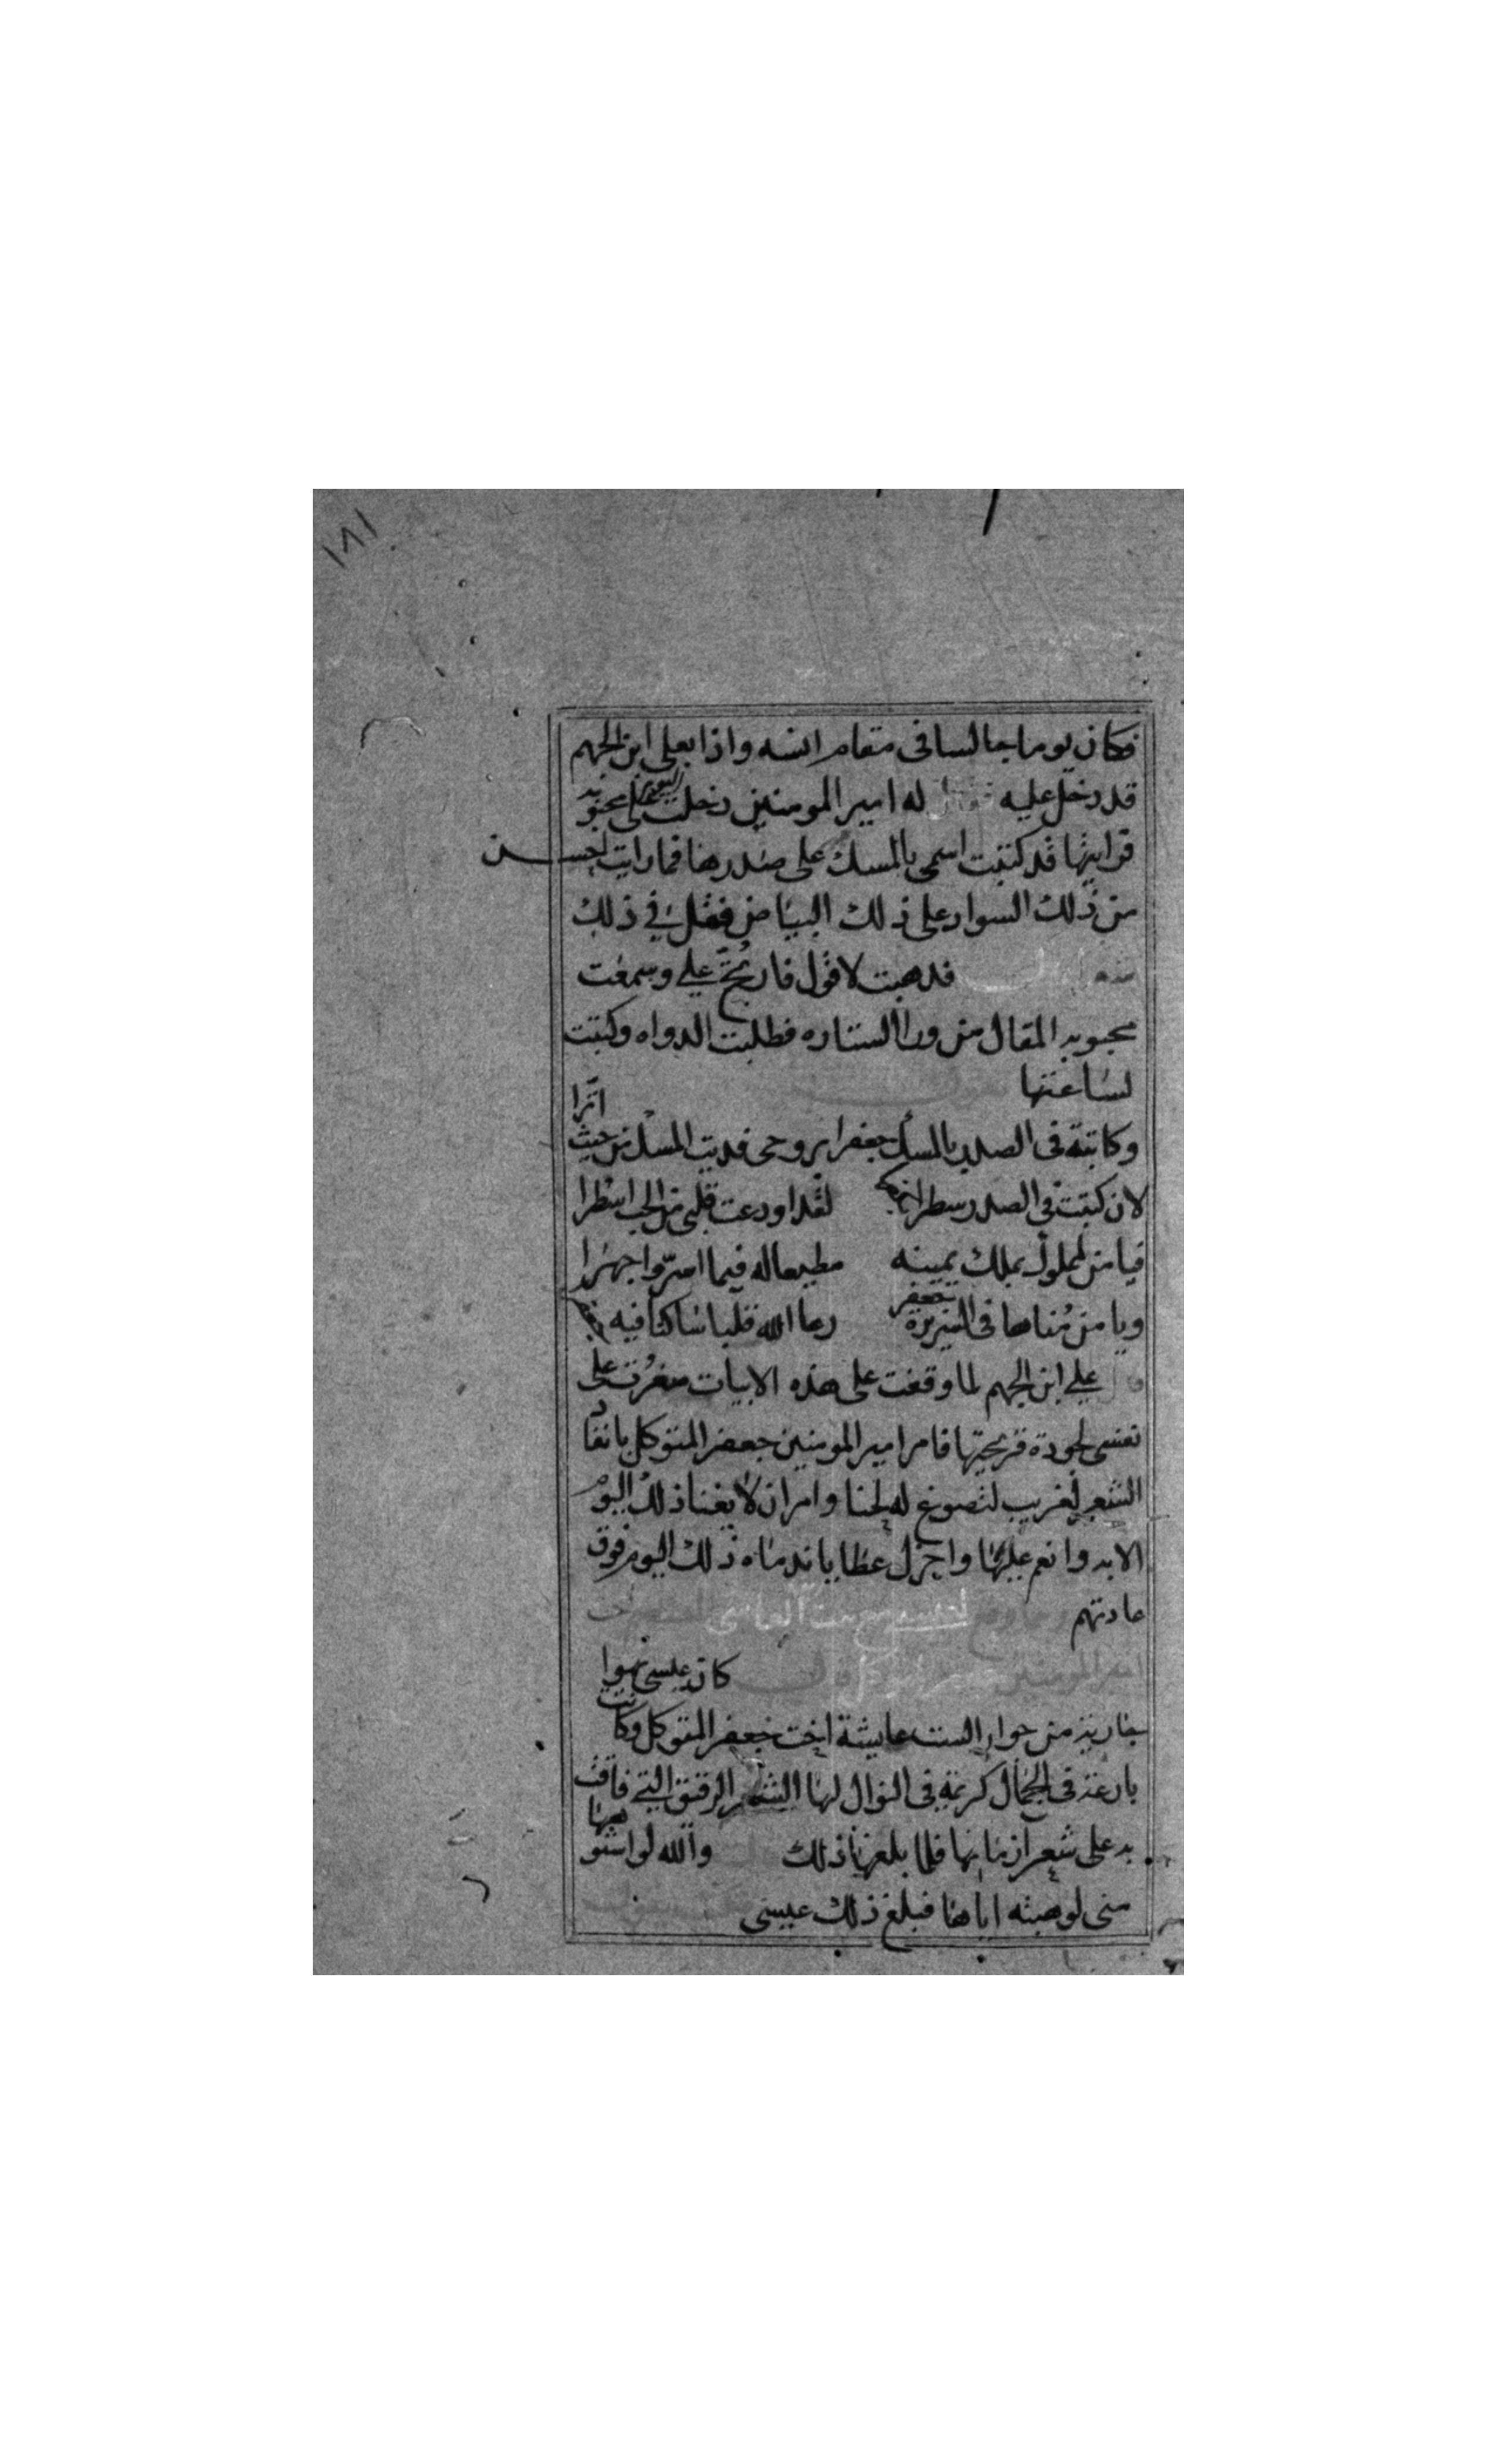 ١٨١
فكان يوما جالسا فى مقام انسه واذا بعلى ابن الجهم
قد دخل عليه فقال له امير المومنين دخلت اليوم على محبوبه
فرايتها قد كتبت اسمى بالمسك على صدرها فما رايت احسن
من ذلك السواد على ذلك البياض فقل في ذلك
فدهبت لاقول فاريج علي وسمعت
محبوبه المقال من ورا الستاره فطلبت الدواه وكتبت
لساعتها
وكاتبة فى الصدر بالمسك جعفرا بروحى فديت المسك من حيث اثرا
لان كتبت في الصدر سطرا لقد اودعت قلبى من الحب اسطرا
فيا من لمملوك يملك يمينه مطيعا له فيما اسر واجهرا
ويا من مناها فى السريرة جعفر رعا الله قلبا ساكنا فيه
قال علي ابن الجهم لما وقفت على هذه الابيات صغرت على
نفسى لجودة قريحتها فامر امير المومنين جعفر المتوكل بانفاد
الشعر لعريب لتصوغ له لحنا وامر ان لا يغنا ذلك اليوم
الا به وانعم عليها واجزل عطايا ندماه ذلك اليوم فوق
عادتهم
امير المومنين كان عيسى يهوا
جاريه من جوار الست عايشة اخت جعفر المتوكل وكانت
بارعة فى الجمال كريمة فى النوال لها الشعر الرقيق التي فاقت
به على شعرا زمانها فلما بلغها ذلك والله لو اشتراها
منى لوهبته اياها فبلغ ذلك عيسى